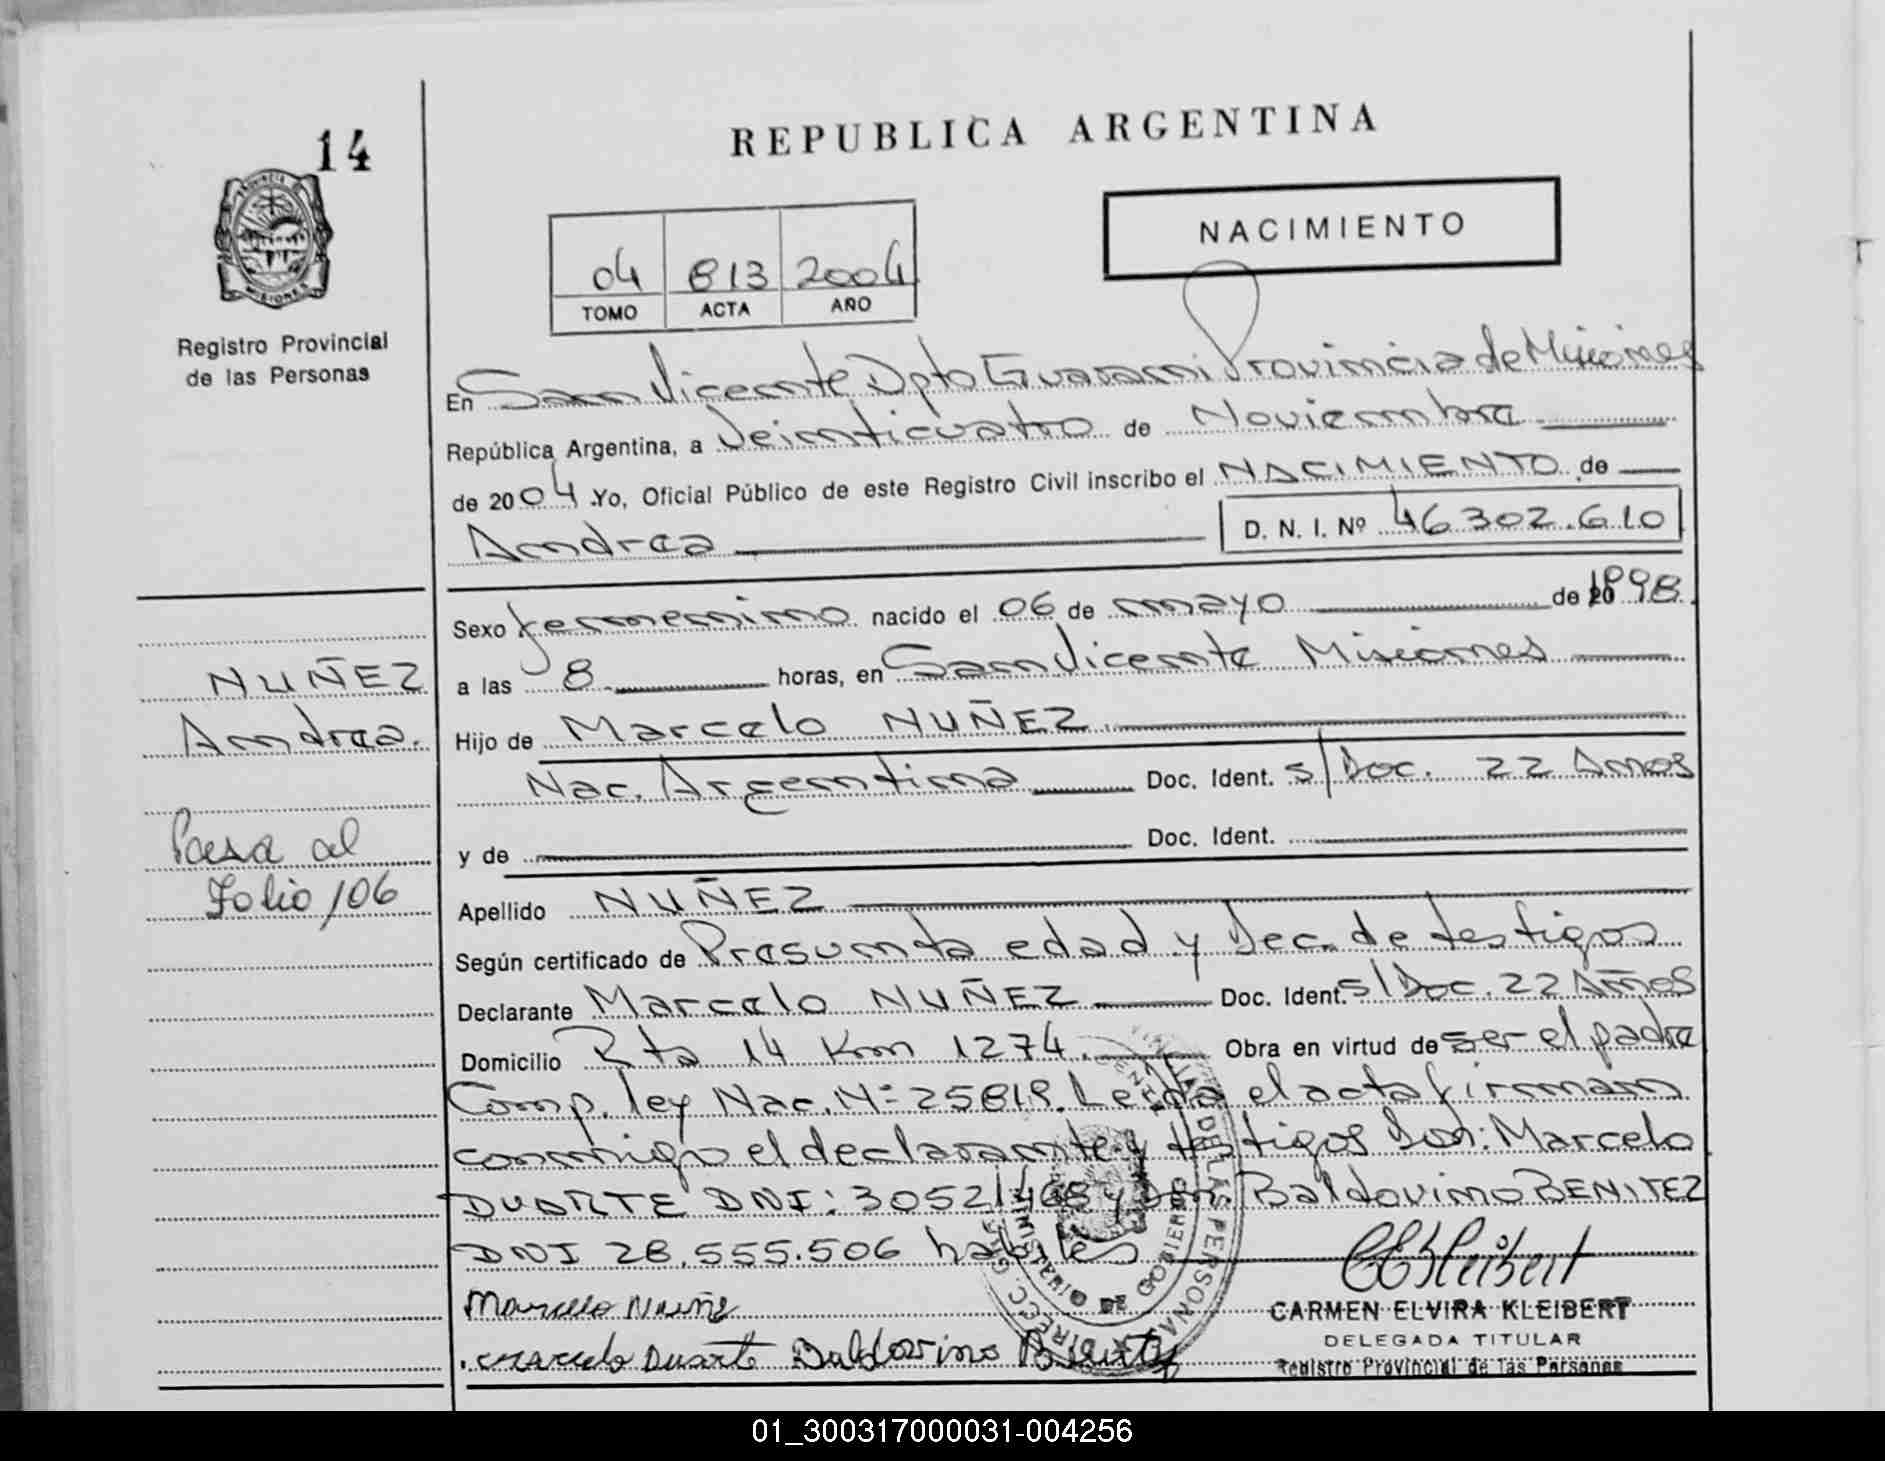 14
REPUBLICA ARGENTINA
PROVINCIA DE
MISIONES
Registro Provincial
de las Personas
04 813 2004
TOMO ACTA AÑO
NACIMIENTO
En San Vicente Dpto Guarani Provincia de Misiones
República Argentina, a Veinticuatro de Noviembre
de 2004 Yo, Oficial Público de este Registro Civil inscribo el NACIMIENTO de
Andrea D. N. I. Nº 46.302.610
Sexo femenino nacido el 06 de mayo de 1998
a las 8 horas, en San Vicente Misiones
Hijo de Marcelo NUÑEZ
Nac. Argentina Doc. Ident. s/Doc. 22 Años
y de Doc. Ident.
Apellido NUÑEZ
Según certificado de Presunta edad y Dec. de testigos
Declarante Marcelo NUÑEZ Doc. Ident. S/Doc. 22 Años
Domicilio Rta 14 Km 1274. Obra en virtud de ser el padre
Comp. ley Nac. Nº 25819. Leída el acta firman
conmigo el declarante y testigos Don: Marcelo
DUARTE DNI: 30521468 y Don Baldovino BENITEZ
DNI 28.555.506 habiles
Marcelo Nuñez
Marcelo Duarte Baldovino Benitez
CARMEN ELVIRA KLEIBERT
DELEGADA TITULAR
Registro Provincial de las Personas
NUÑEZ
Andrea.
Pasa al
Folio 106
01_300317000031-004256